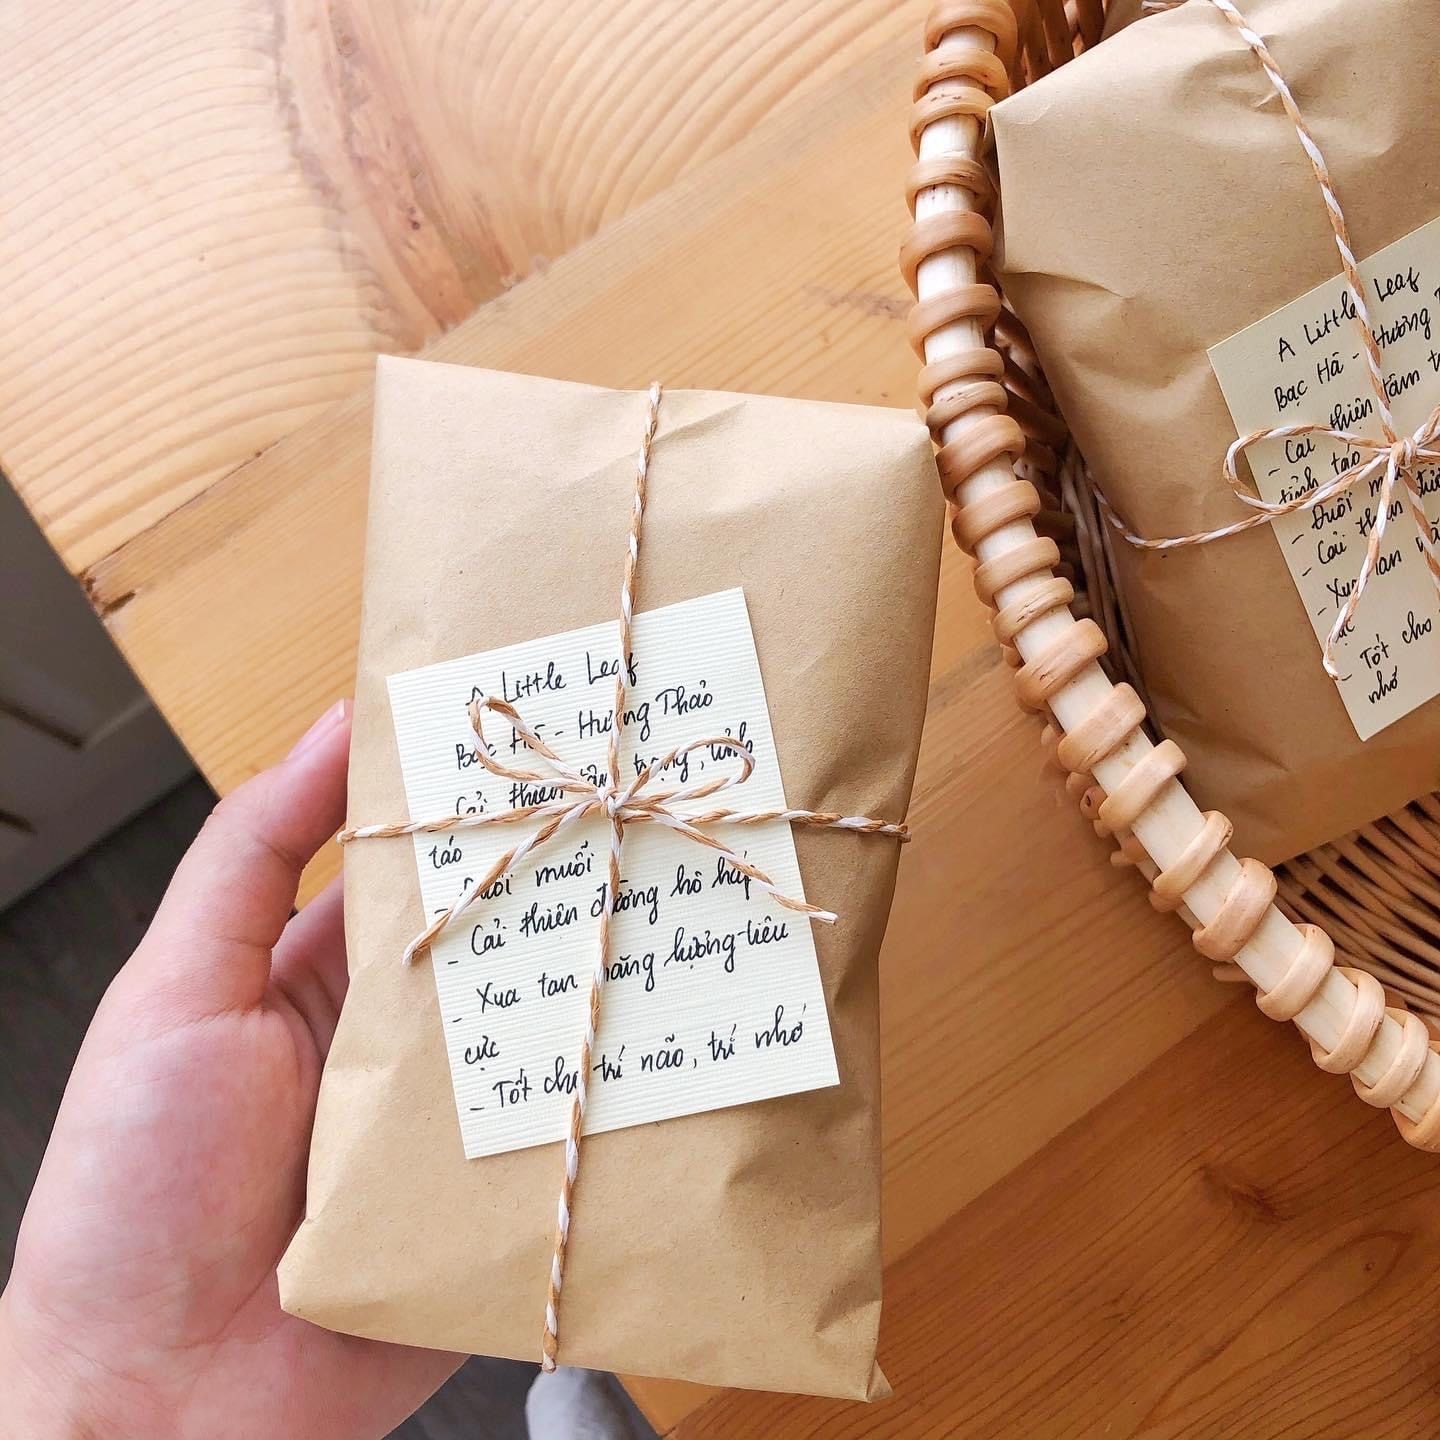 A Little Leaf
Bạc Hà - Hương Thảo
- Cải thiện tâm trạng, tỉnh
táo
- Đuổi muỗi
- Cải thiện đường hô hấp
- Xua tan năng lượng tiêu
cực
- Tốt cho trí não, trí nhớ
A Little Leaf
Bạc Hà - Hương T
- Cải thiện tâm tr
tỉnh táo
- Đuổi mu
- Cải thiện đườ
- Xua tan nă
cực
- Tốt cho
nhớ